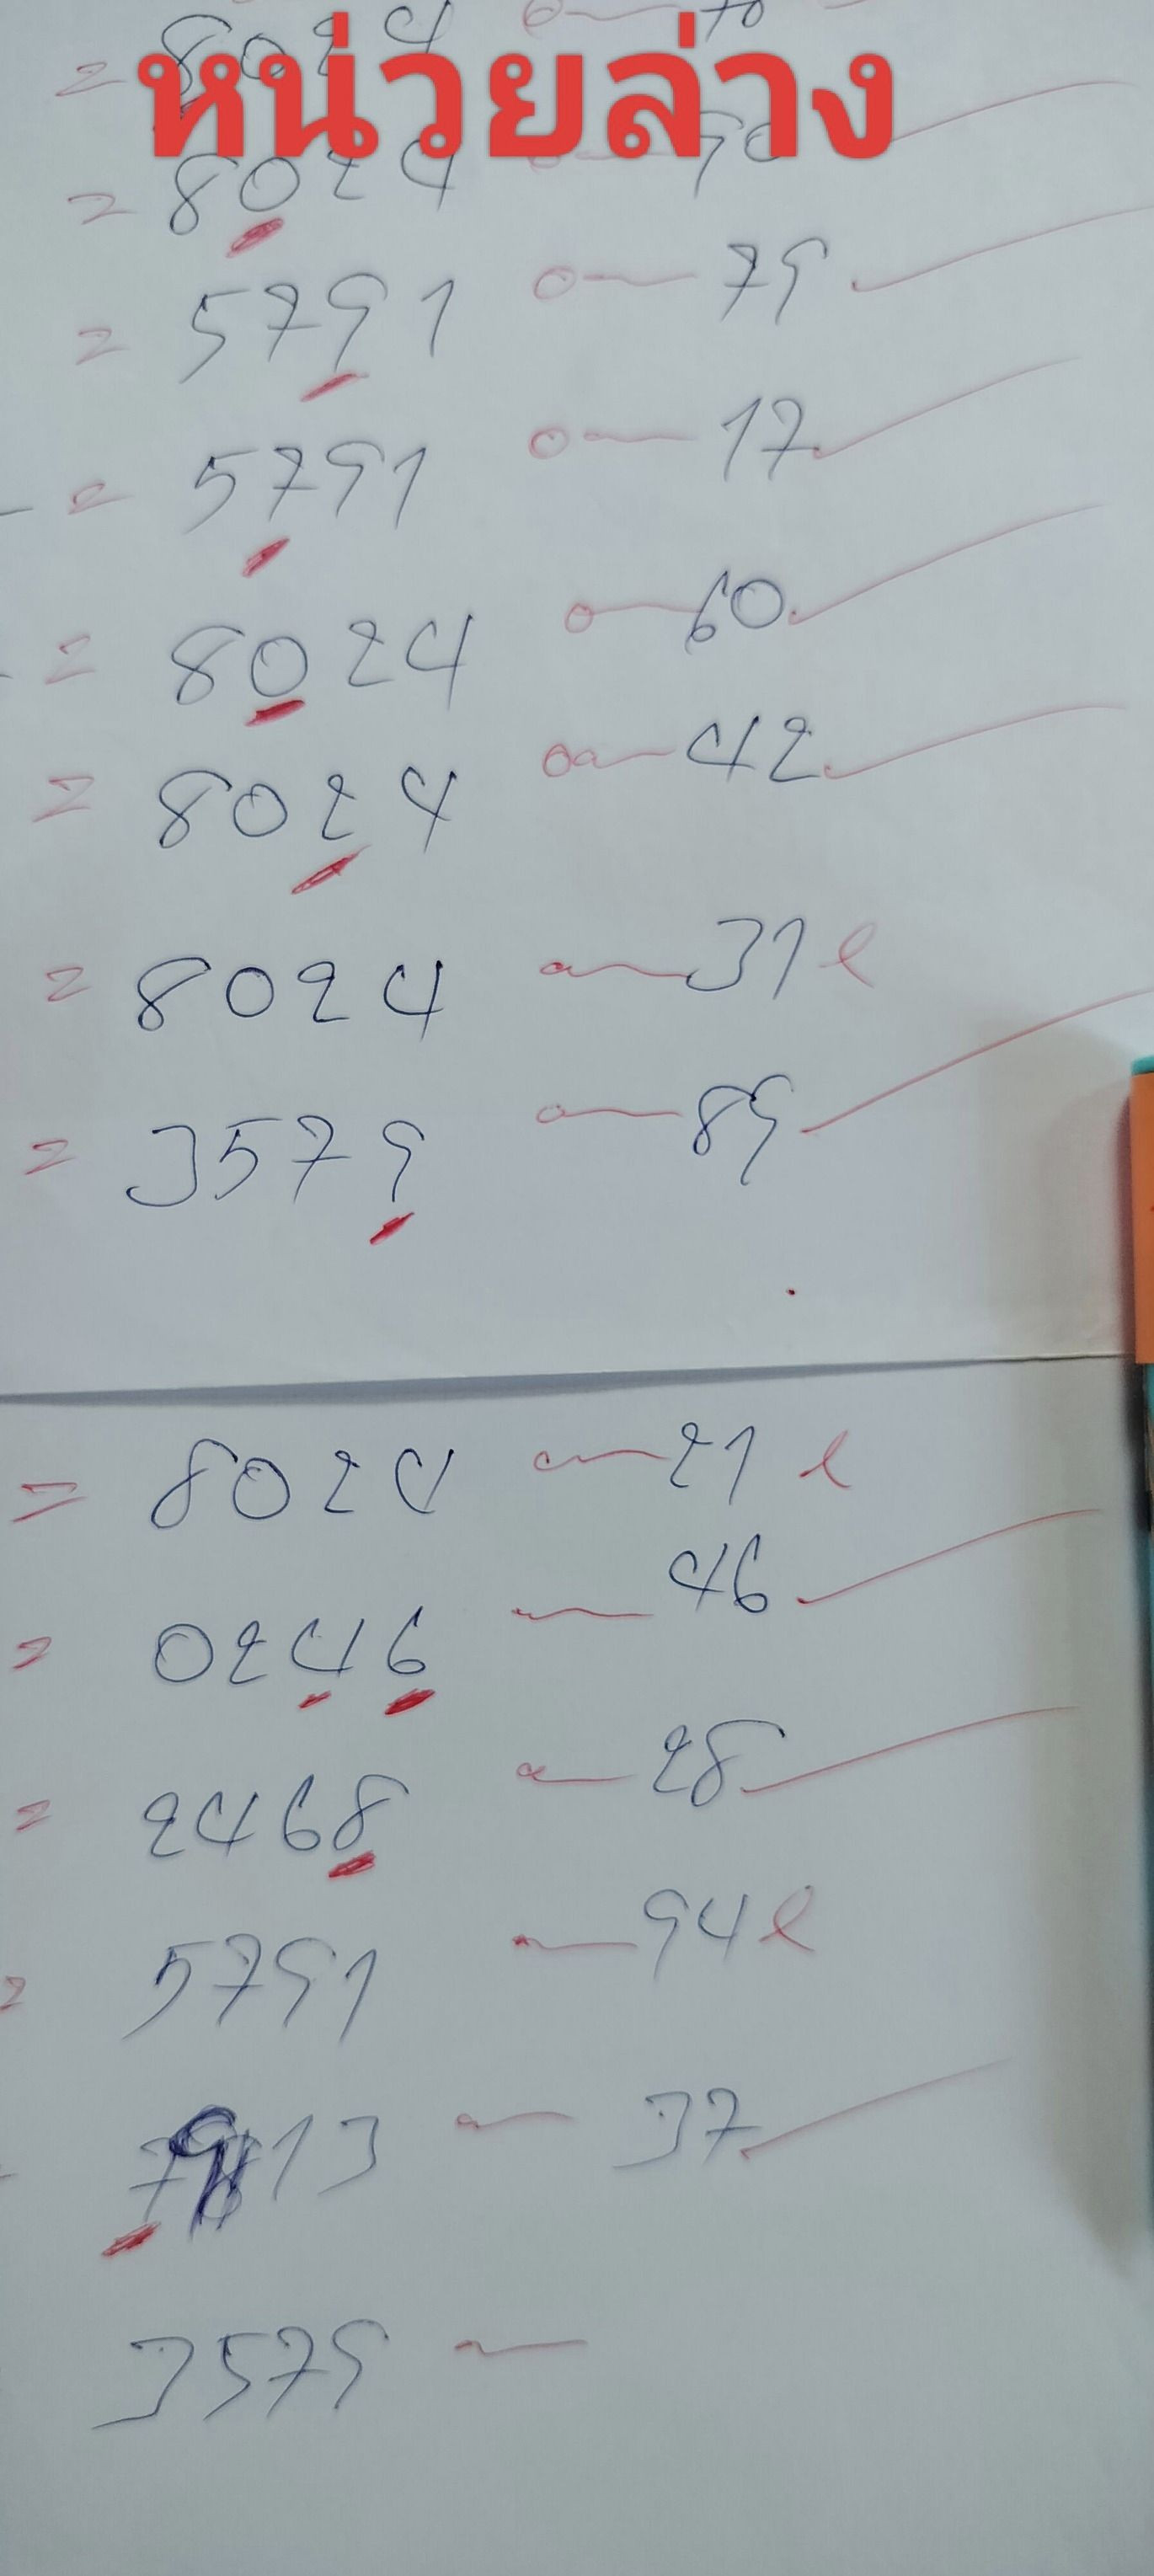 หน่วยล่าง
= 8024 70
= 8024 90
= 5791 79
= 5791 17
= 8024 60
= 8024 42
= 8024 31
= 3579 89
= 8024 21
= 0246 46
= 2468 28
= 5791 94
7913 37
3579